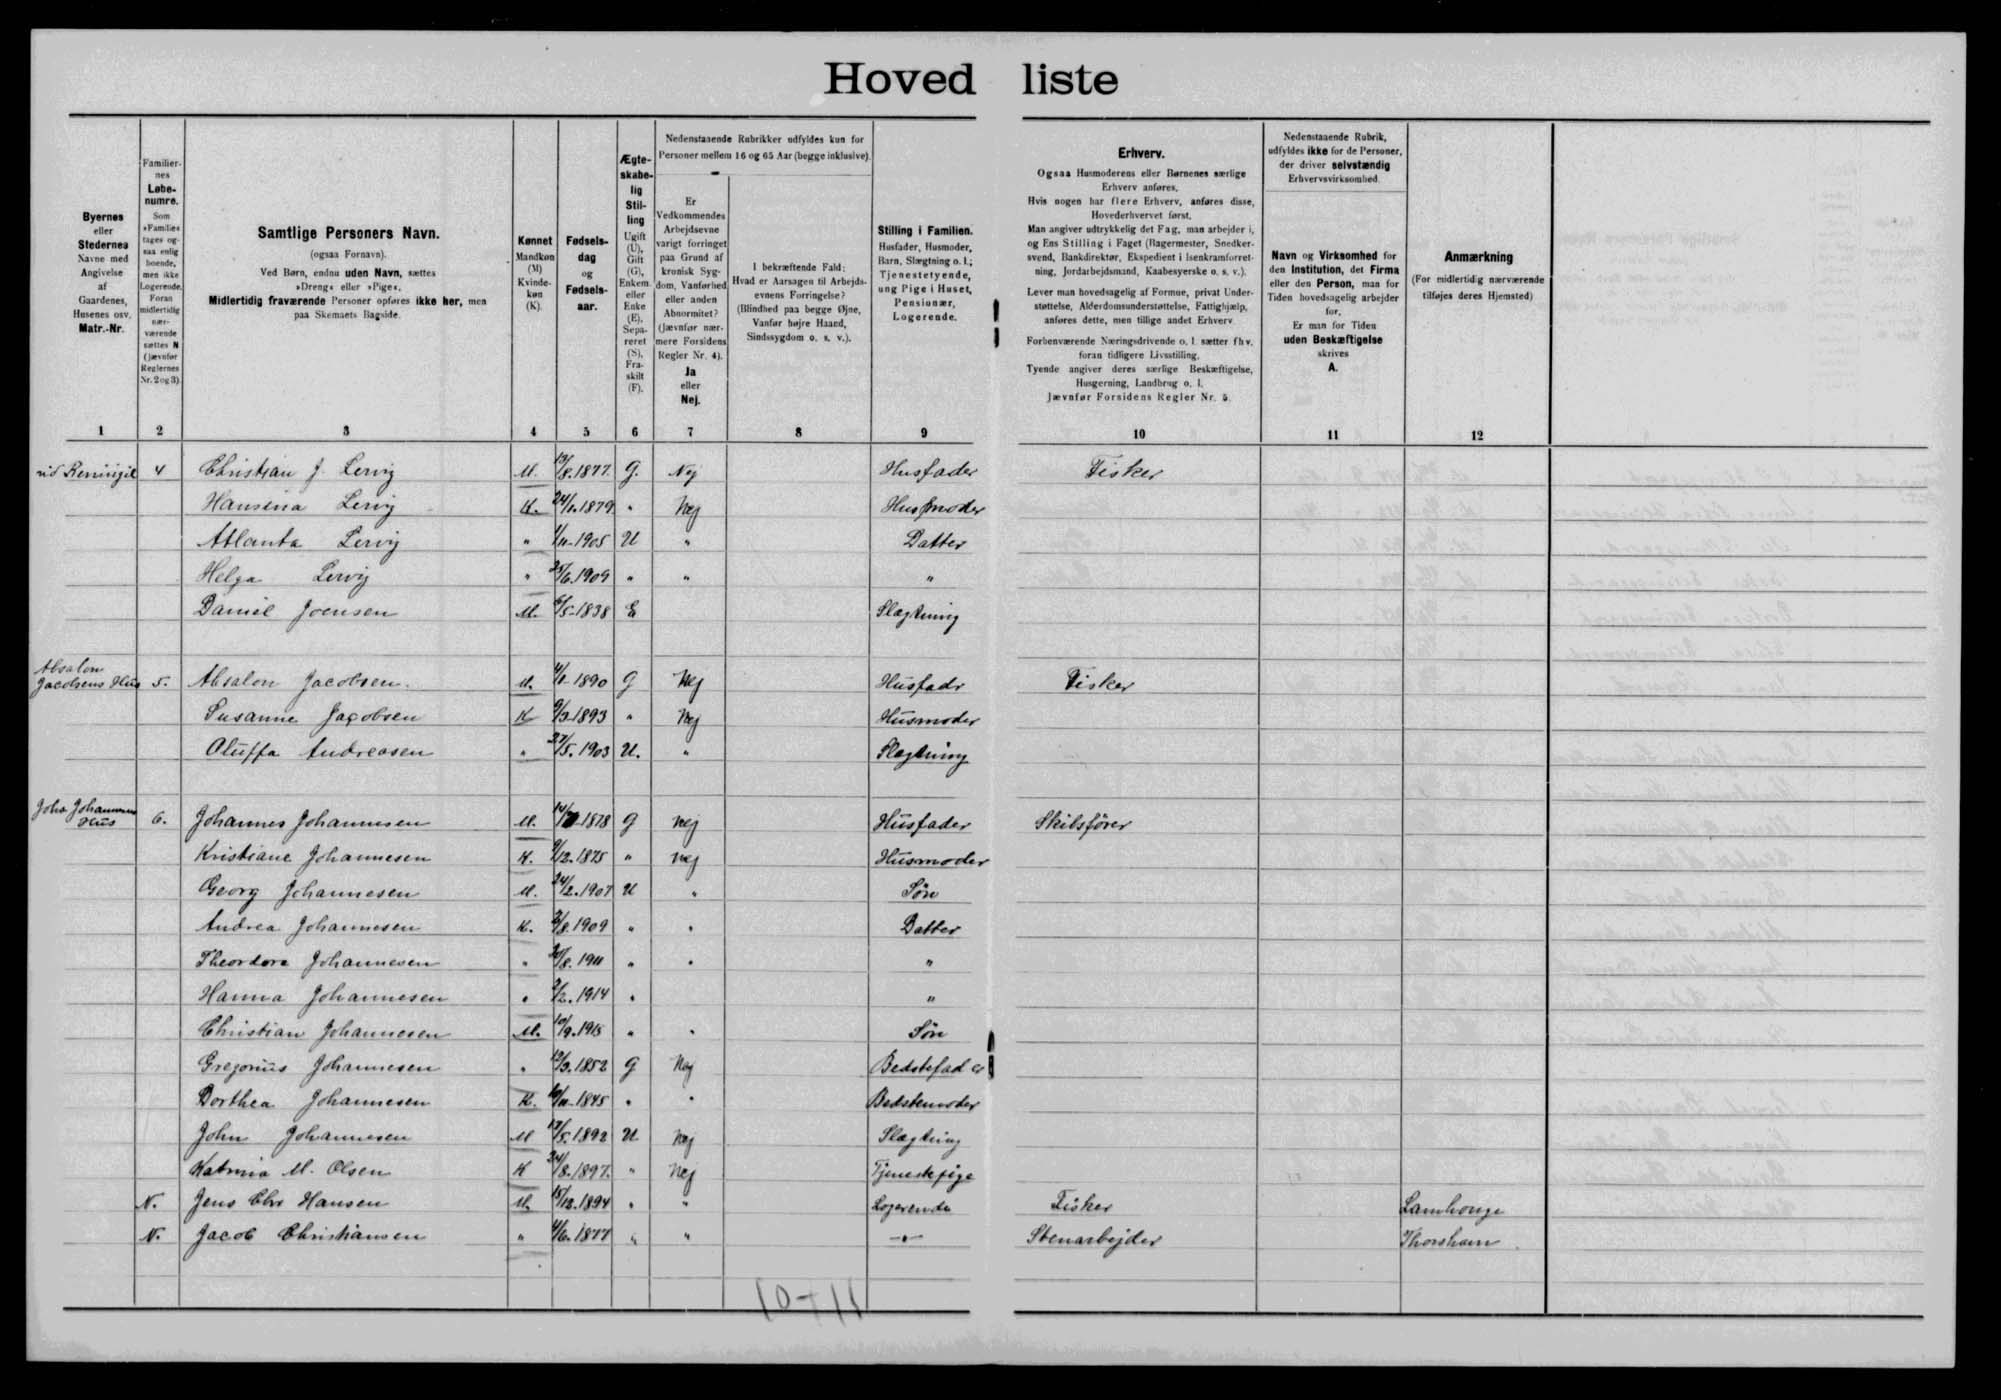 Hovedliste
Byernes
eller
Stedernes
Navne med
Angivelse
af
Gaardenes,
Husenes osv.
Matr.-Nr.
Familier-
nes
Løbe-
numre.
Som
»Familie«
tages og-
saa enlig
boende,
men ikke
Logerende.
Foran
midlertidig
nær-
værende
sættes N
(jævnfør
Reglernes
Nr. 2 og 3).
Samtlige Personers Navn.
(ogsaa Fornavn).
Ved Børn, endnu uden Navn, sættes
»Dreng« eller »Pige«.
Midlertidig fraværende Personer opføres ikke her, men
paa Skemaets Bagside.
Kønnet
Mandkøn
(M)
Kvinde-
køn
(K).
Fødsels-
dag
og
Fødsels-
aar.
Ægte-
skabe-
lig
Stil-
ling
Ugift
(U),
Gift
(G),
Enkem.
eller
Enke
(E),
Sepa-
reret
(S),
Fra-
skilt
(F).
Nedenstaaende Rubrikker udfyldes kun for
Personer mellem 16 og 65 Aar (begge inklusive).
Er
Vedkommendes
Arbejdsevne
varigt forringet
paa Grund af
kronisk Syg-
dom, Vanførhed
eller anden
Abnormitet?
(Jævnfør nær-
mere Forsidens
Regler Nr. 4).
Ja
eller
Nej.
I bekræftende Fald:
Hvad er Aarsagen til Arbejds-
evnens Forringelse?
(Blindhed paa begge Øjne,
Vanfør højre Haand,
Sindssygdom o. s. v.).
Stilling i Familien.
Husfader, Husmoder,
Barn, Slægtning o. l.;
Tjenestetyende,
ung Pige i Huset,
Pensionær,
Logerende.
Erhverv.
Ogsaa Husmoderens eller Børnenes særlige
Erhverv anføres.
Hvis nogen har flere Erhverv, anføres disse,
Hovederhvervet først.
Man angiver udtrykkelig det Fag, man arbejder i,
og Ens Stilling i Faget (Bagermester, Snedker-
svend, Bankdirektør, Ekspedient i Isenkramforret-
ning, Jordarbejdsmand, Kaabesyerske o. s. v.).
Lever man hovedsagelig af Formue, privat Under-
støttelse, Alderdomsunderstøttelse, Fattighjælp,
anføres dette, men tillige andet Erhverv
Forhenværende Næringsdrivende o. l. sætter fhv.
foran tidligere Livsstilling.
Tyende angiver deres særlige Beskæftigelse,
Husgerning, Landbrug o. l.
Jævnfør Forsidens Regler Nr. 5.
Nedenstaaende Rubrik,
udfyldes ikke for de Personer,
der driver selvstændig
Erhvervsvirksomhed.
Navn og Virksomhed for
den Institution, det Firma
eller den Person, man for
Tiden hovedsagelig arbejder
for.
Er man for Tiden
uden Beskæftigelse
skrives
A.
Anmærkning
(For midlertidig nærværende
tilføjes deres Hjemsted)
1 2 3 4 5 6 7 8 9 10 11 12
4 Christian J. Lervig M. 13/8.1877. G. Nej Husfader Fisker
Hansina Lervig K. 24/1.1879. " Nej Husmoder
Atlanta Lervig " 1/11-1905 U " Datter
Helga Lervig " 25/6.1909 " " "
Daniel Joensen M. 6/5-1838 E Slægtning
Absalon
Jacobsens Hus 5. Absalon Jacobsen. M. 4/1-1890 G Nej Husfadr Fisker
Susanne Jacobsen K 9/3.1893 " Nej Husmoder
Oluffa Andreasen " 27/5.1903 U. " Slægtning
Johs Johannesens
Hus 6. Johannes Johannesen M. 1878 G Nej Husfader Skibsfører
Kristiane Johannesen K. 9/12.1875 " Nej Husmoder
Georg Johannesen M. 24/2.1907 U " Søn
Andrea Johannesen K. 1909 " " Datter
Theordora Johannesen " 20/8.1911 " " "
Hanna Johannesen " 2/2.1914 " "
Christian Johannesen M. 10/9.1915 " " Søn
Gregorius Johannesen " 1852 G Nej Bedstefader
Dorthea Johannesen K. 10/11-1845 " " Bedstemoder
John Johannesen M 1892 U Nej Slægtning
Katrina M. Olsen K 24/8.1897. " Nej Tjenestepige
N. Jens Chr Hansen M. 15/12.1894 " " Logerende Fisker
N. Jacob Christiansen " 4/6.1877 " " -"- Stenarbejder Thorshavn.
10+11